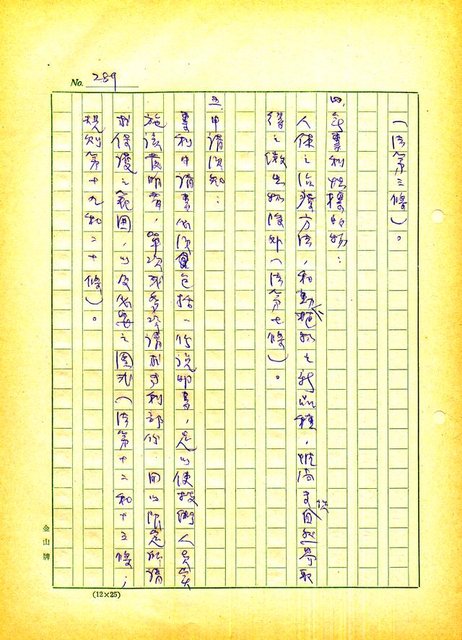 No. 289
(法第三條)。
四、無專利性標的物:
人体之治療方法,和動植物之新品種,惟依自然界取
得之微生物除外(法第七條)。
五、申請須知:
專利申請書必須包括一份說明書,足以使技術人員实
施該發明者,單次或多次請求專利部份 用以限定所請
求保護之範圍,以及必要之图式(法第十二和十三條;
規則第十九和二十條)。
金山牌
(12×25)